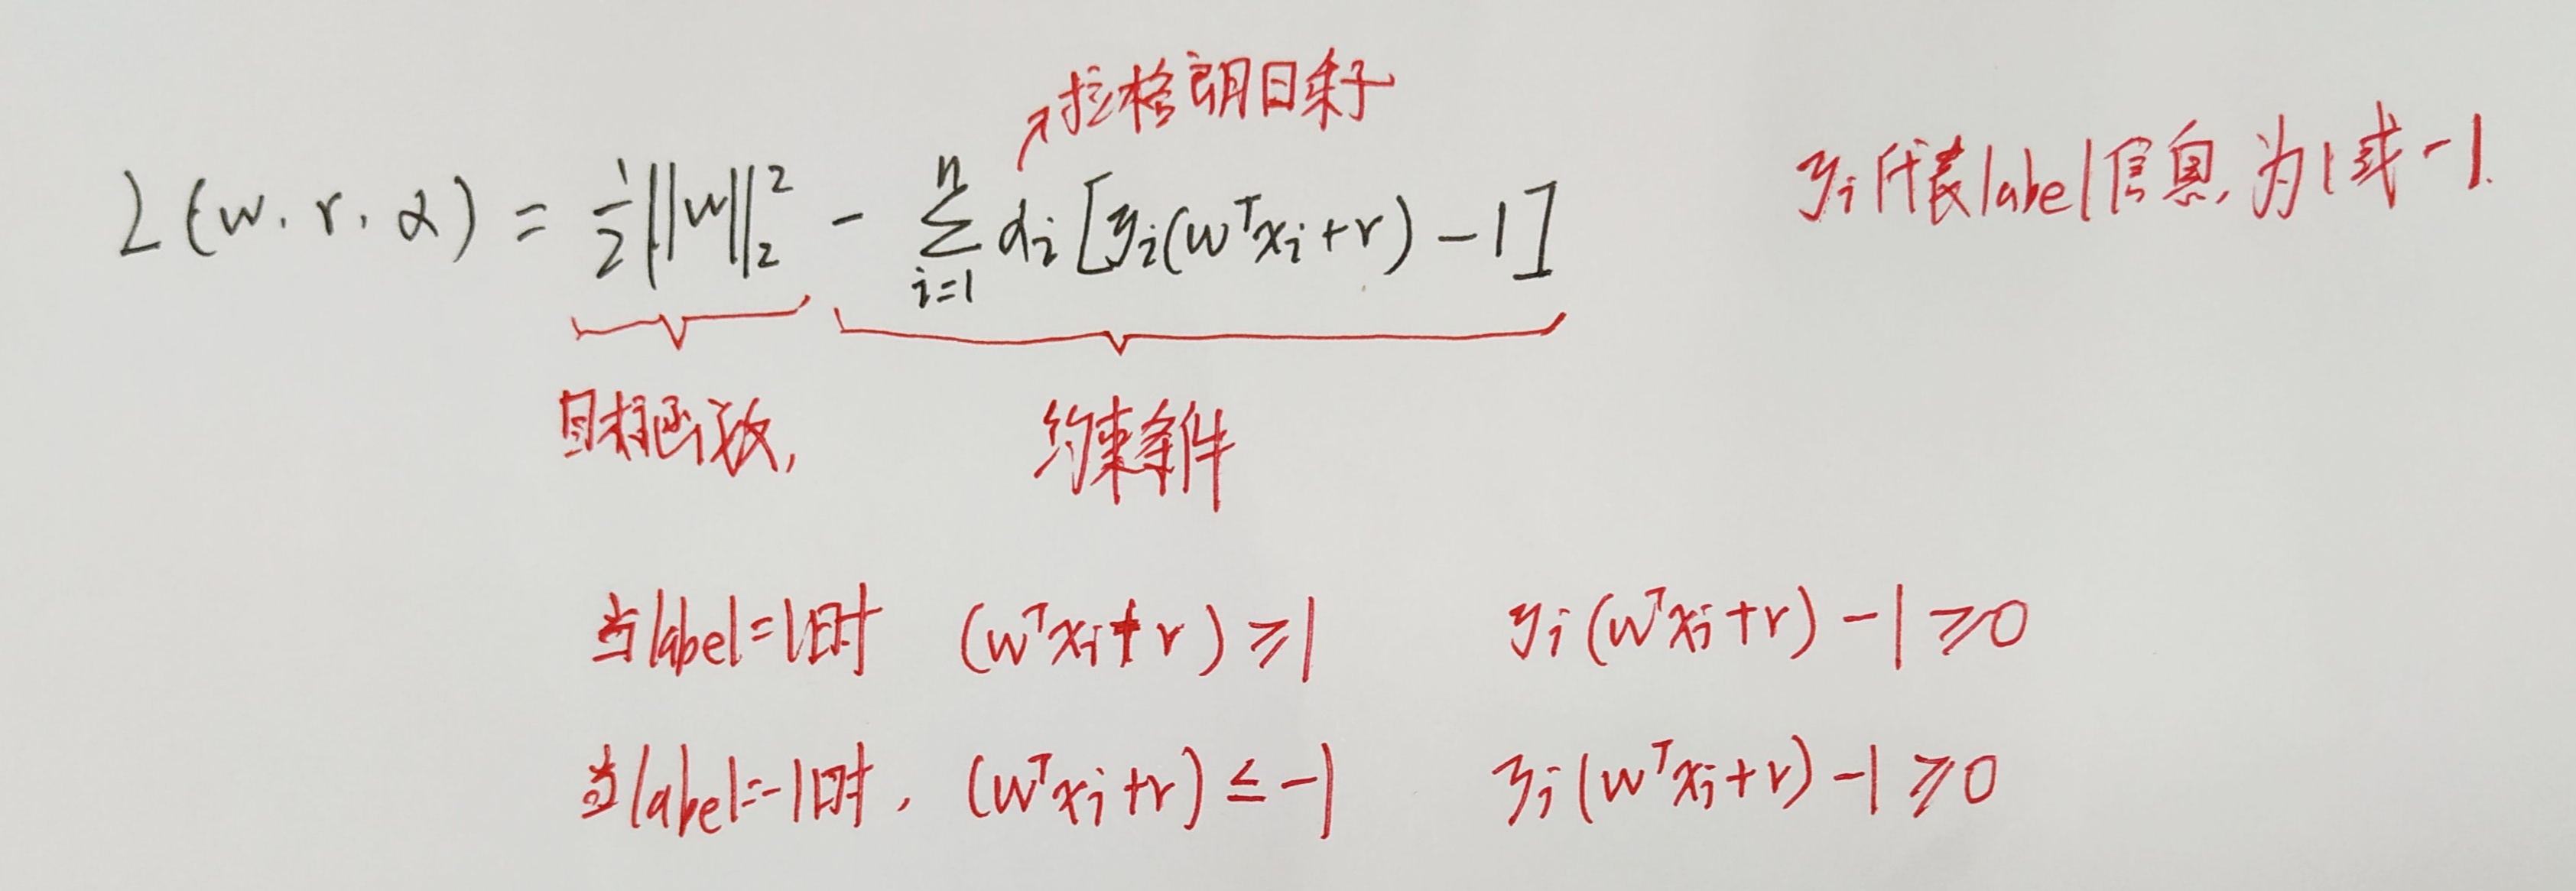 拉格朗日乘子
L(w, r, α) = 1/2 ||w||₂² - Σᵢ₌₁ⁿ αᵢ [yᵢ(wᵀxᵢ+r) - 1]
yᵢ代表label信息,为1或-1.
目标函数,
约束条件
当label=1时 (wᵀxᵢ+r) ≥ 1 yᵢ(wᵀxᵢ+r) - 1 ≥ 0
当label=-1时, (wᵀxᵢ+r) ≤ -1 yᵢ(wᵀxᵢ+r) - 1 ≥ 0